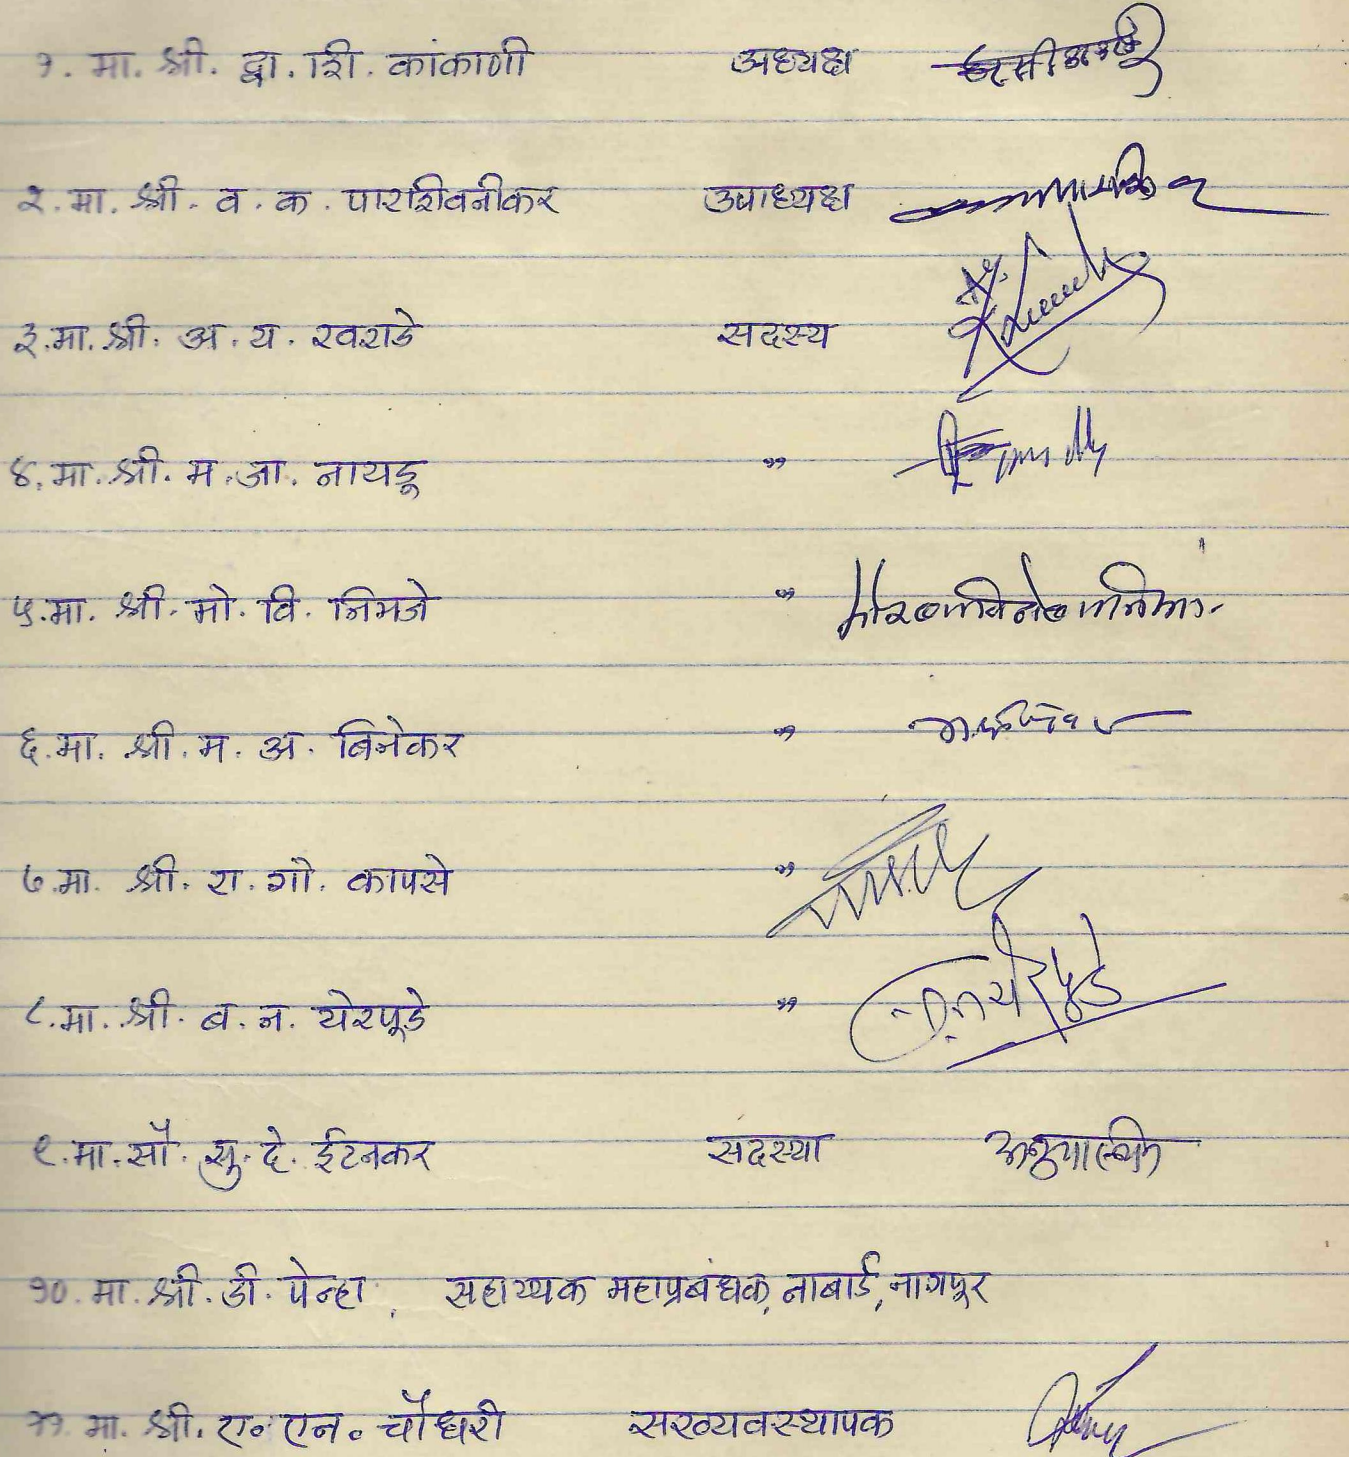 १. मा. श्री. द्वा. रि. कांकाणी अध्यक्ष
२. मा. श्री. व. क. पारशिवनीकर उपाध्यक्ष
३. मा. श्री. अ. य. खराडे सदस्य
४. मा. श्री. म. जा. नायडू "
५. मा. श्री. मो. वि. निमजे "
६. मा. श्री. म. अ. बिनेकर "
७. मा. श्री. रा. गो. कापसे "
८. मा. श्री. ब. न. येरपूडे "
९. मा. सौ. सु. दे. ईटनकर सदस्या
१०. मा. श्री. डी. पेन्हा, सहाय्यक महाप्रबंधक, नाबार्ड, नागपूर
११. मा. श्री. ए. एन. चौधरी सरव्यवस्थापक